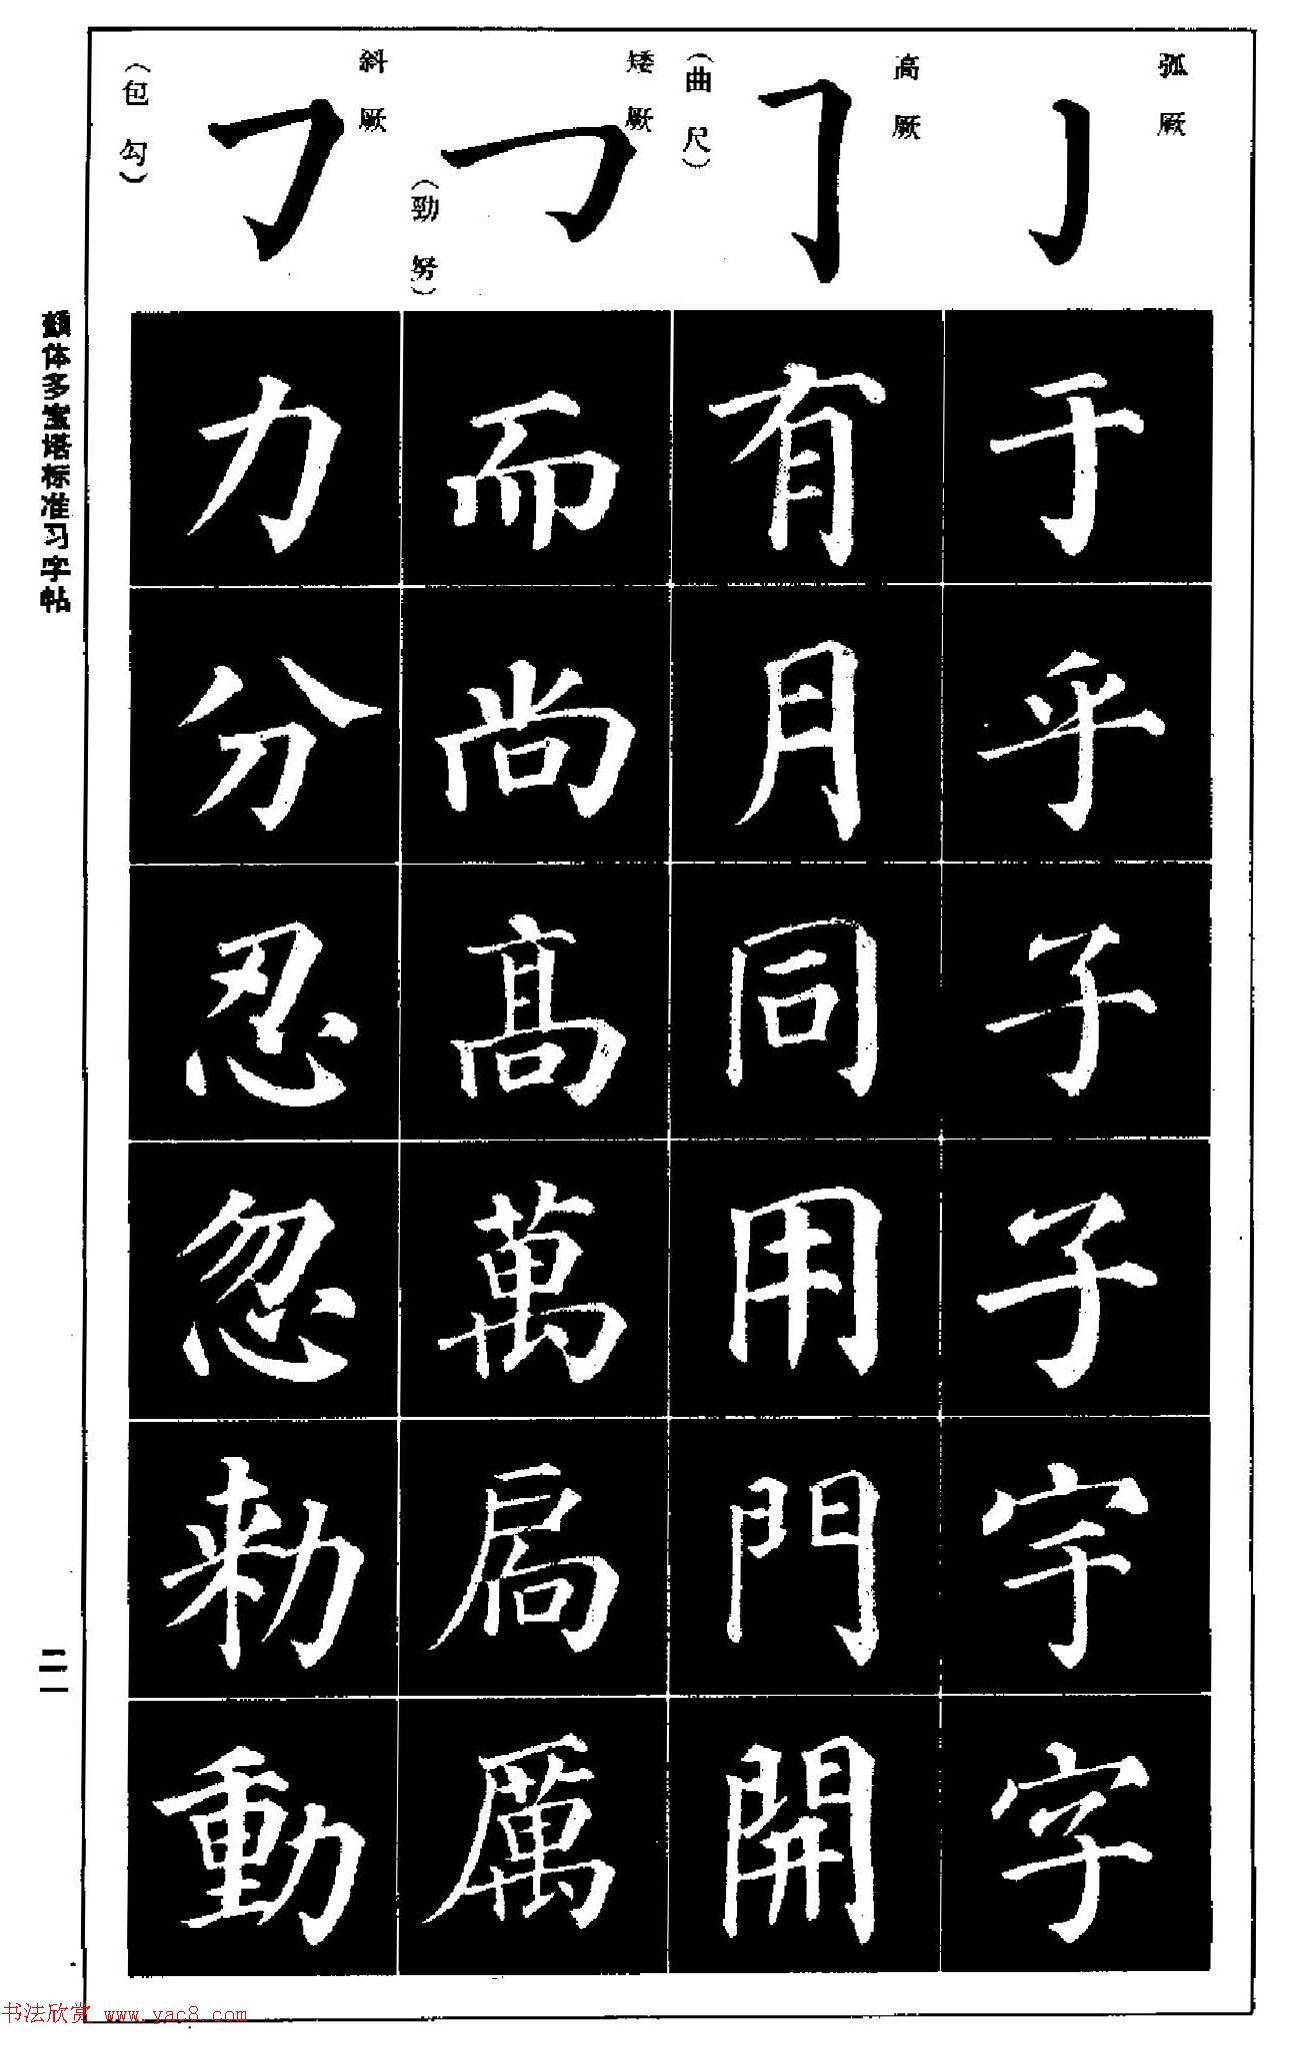 弧厥
高厥
(曲尺)
矮厥
(勁努)
斜厥
(包勾)
于乎子子宇字
有月同用門開
而尚髙萬扃厲
力分忍忽勑動
顏体多宝塔标准习字帖
二一
书法欣赏 www.yac8.com